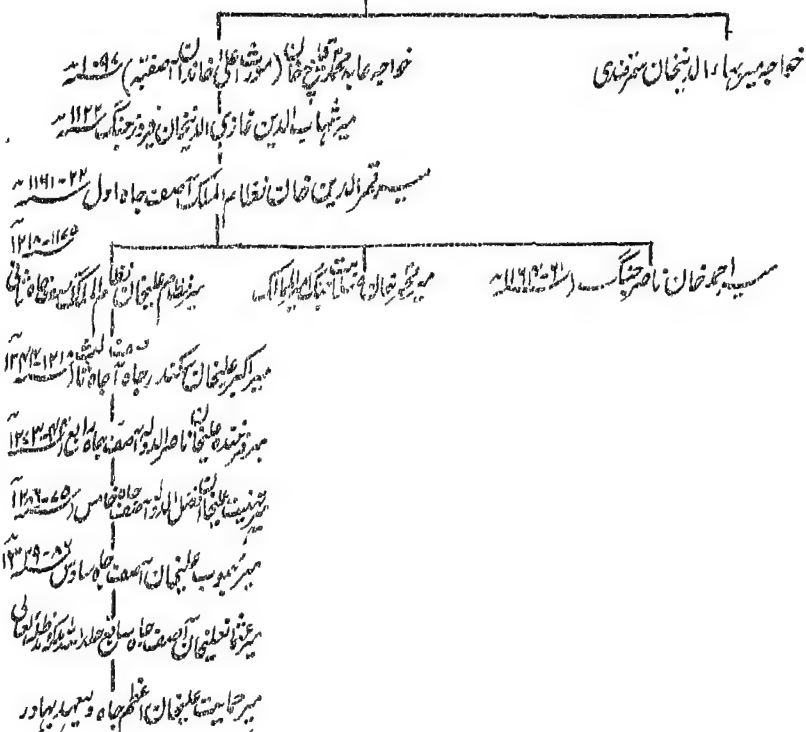 خواجہ میر بہاء الدینخان سمرقندی
خواجہ عابد محمد قلیچ خان (مورث اعلیٰ خاندان آصفیہ) ۱۰۹۸ھ
میر شہاب الدین غازی الدینخان فیروز جنگ ۱۱۲۲ھ
میر قمر الدین خان نظام الملک آصف جاہ اول ۲۲-۱۱۶۱ھ
میر احمد خان ناصر جنگ (۶۱-۱۱۶۴ھ
میر نظام علیخان نظام الملک آصف جاہ ثانی ۱۱۷۵-۱۲۱۸
میر اکبر علیخان سکندر جاہ آصف جاہ ثالث
میر فرخندہ علیخان ناصر الدولہ آصف جاہ رابع
میر تہنیت علیخان افضل الدولہ آصف جاہ خامس
میر محبوب علیخان آصف جاہ سادس
میر عثمان علیخان آصف جاہ سابع خلد اللہ ملکہ
میر حمایت علیخان اعظم جاہ ولیعہد بہادر